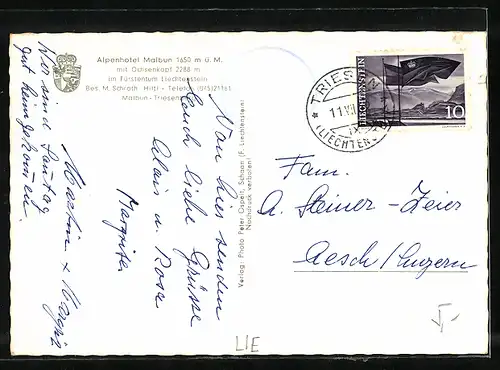 Alpenhotel Malbun 1650 m ü. M.
mit Ochsenkopf 2288 m
im Fürstentum Liechtenstein
Bes. M. Schroth-Hilti - Telefon (075) 21163
Malbun - Triesenberg
Von hier senden
Euch liebe Grüsse
Alois u. Rosa
Margrith
Wir sind Sonntag
gut heimgekommen.
Martin +
Verlag: Photo Peter Ospelt, Schaan (F. Liechtenstein)
Nachdruck verboten!
TRIESEN
11.VII
(LIECHTENS
LIECHTENSTEIN
10
Fam.
A. Steiner-Zeier
Aesch/Luzern
LIE